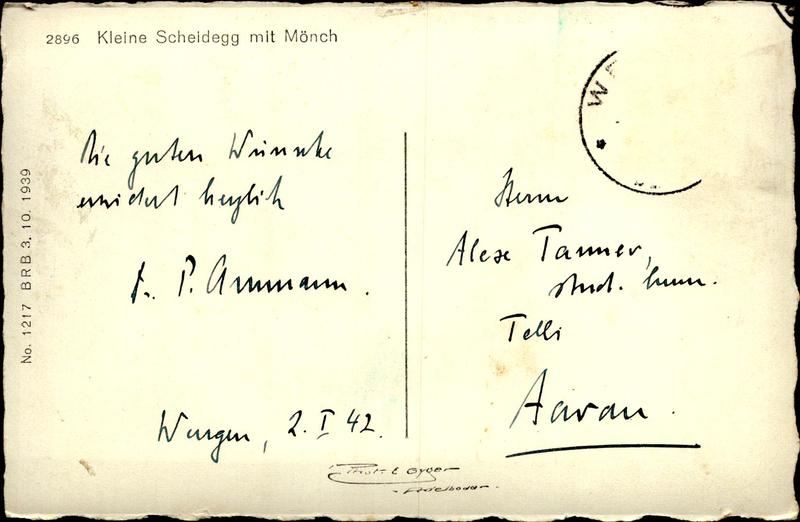 2896 Kleine Scheidegg mit Mönch
Die guten Wünsche
erwidert herzlich
Dr. P. Ammann.
Wengen, 2. I 42.
No. 1217 BRB 3. 10. 1939
WE
Herrn
Alex Tanner,
stud. hum.
Telli
Aarau.
Phot. E. Gyger
Adelboden